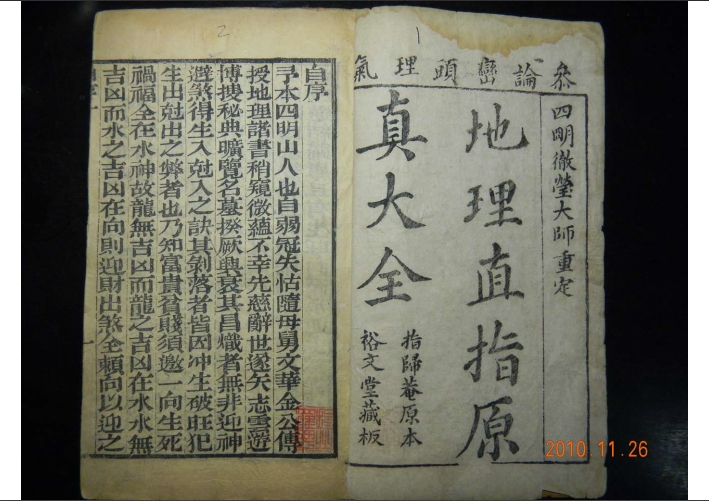 1
參論巒頭理氣
四明徹瑩大師重定
地理直指原
真大全
指歸菴原本
裕文堂藏板
2
自序
予本四明山人也自弱冠失怙隨母舅文華金公傳
授地理諸書稍窺微蘊不幸先慈辭世遂矢志雲遊
博搜秘典曠覽名墓揆厥興衰其昌熾者無非迎神
避煞得生入尅入之訣其剝落者皆因冲生破旺犯
生出尅出之弊者也乃知富貴貧賤須邀一向生死
禍福全在水神故龍無吉凶而龍之吉凶在水水無
吉凶而水之吉凶在向則迎財出煞全賴向以迎之
自序 一
一
2010.11.26